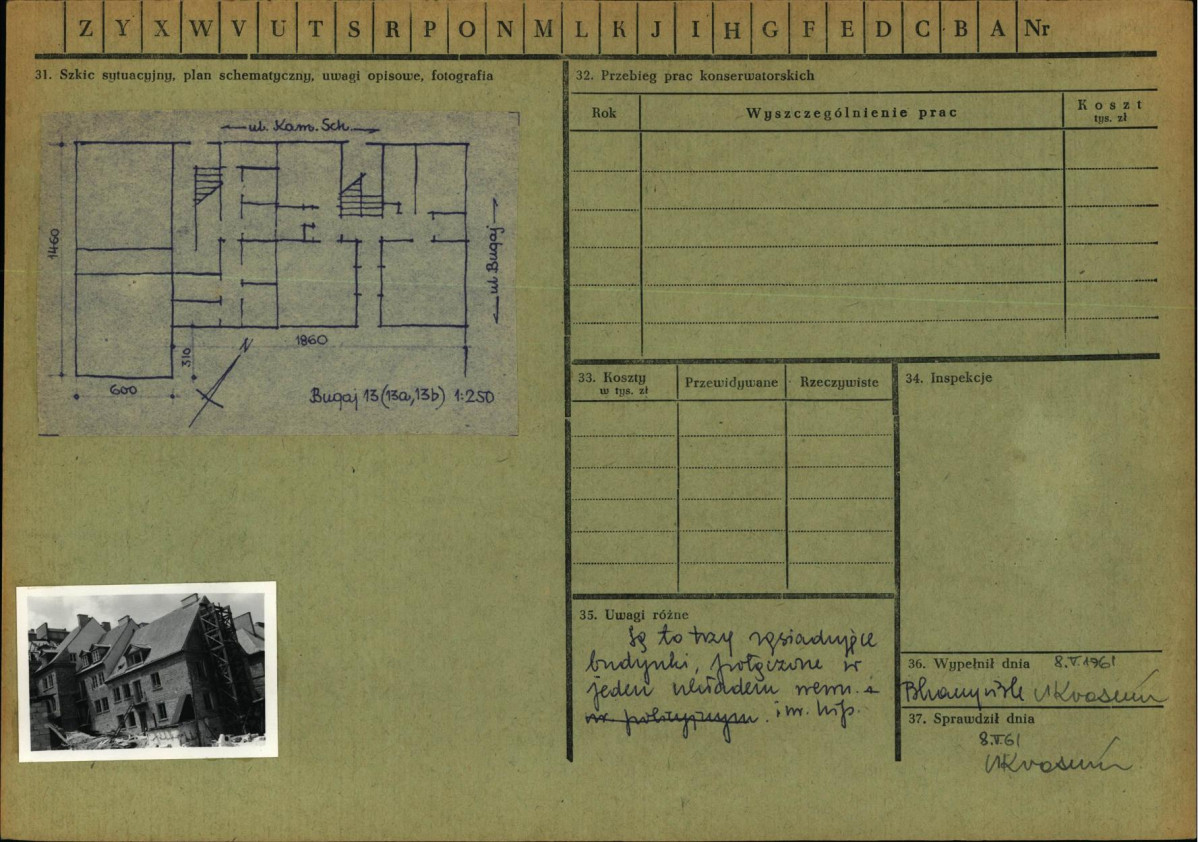 Z Y X W V U T S R P O N M L K J I H G F E D C B A Nr
31. Szkic sytuacyjny, plan schematyczny, uwagi opisowe, fotografia
ul. Kam. Sch.
1460
ul Bugaj
1860
310
N
600
Bugaj 13 (13a, 13b) 1:250
32. Przebieg prac konserwatorskich
Rok Wyszczególnienie prac Koszt
tys. zł
33. Koszty Przewidywane Rzeczywiste
w tys. zł
34. Inspekcje
35. Uwagi różne
Są to trzy sąsiadujące
budynki, połączone w
jeden układem wewn.
i nr. hip.
36. Wypełnił dnia 8.V.1961
37. Sprawdził dnia
8.V.61